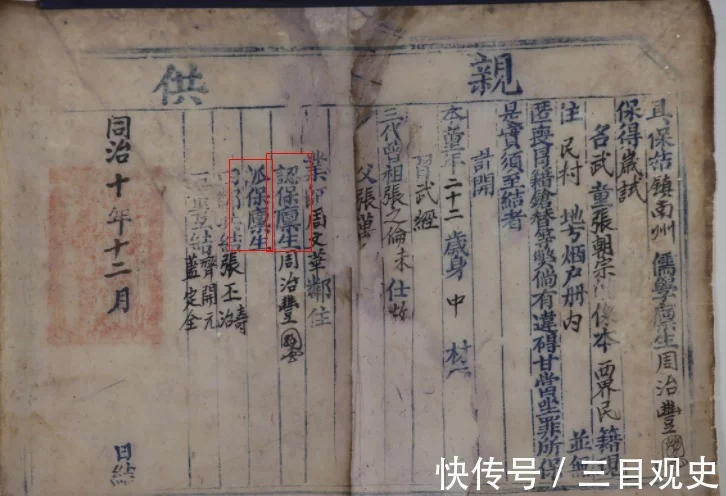 親供
具保結鎮南州儒學廩生周治豐
保得歲試
名武童張朝宗係本界民籍
注民村地方烟户册内並無
匿喪冒籍鎗替等弊倘有違碍甘當坐罪所保
是實須至結者
計開
本童年二十二歲身中材
習武經
三代曾祖張之倫未仕故
父張萬
業師周文華鄰佑
認保廩生周治豐
派保廩生
張丕濤
互結齊開元
蓋定全
同治十年十二月日結
快传号/三目观史